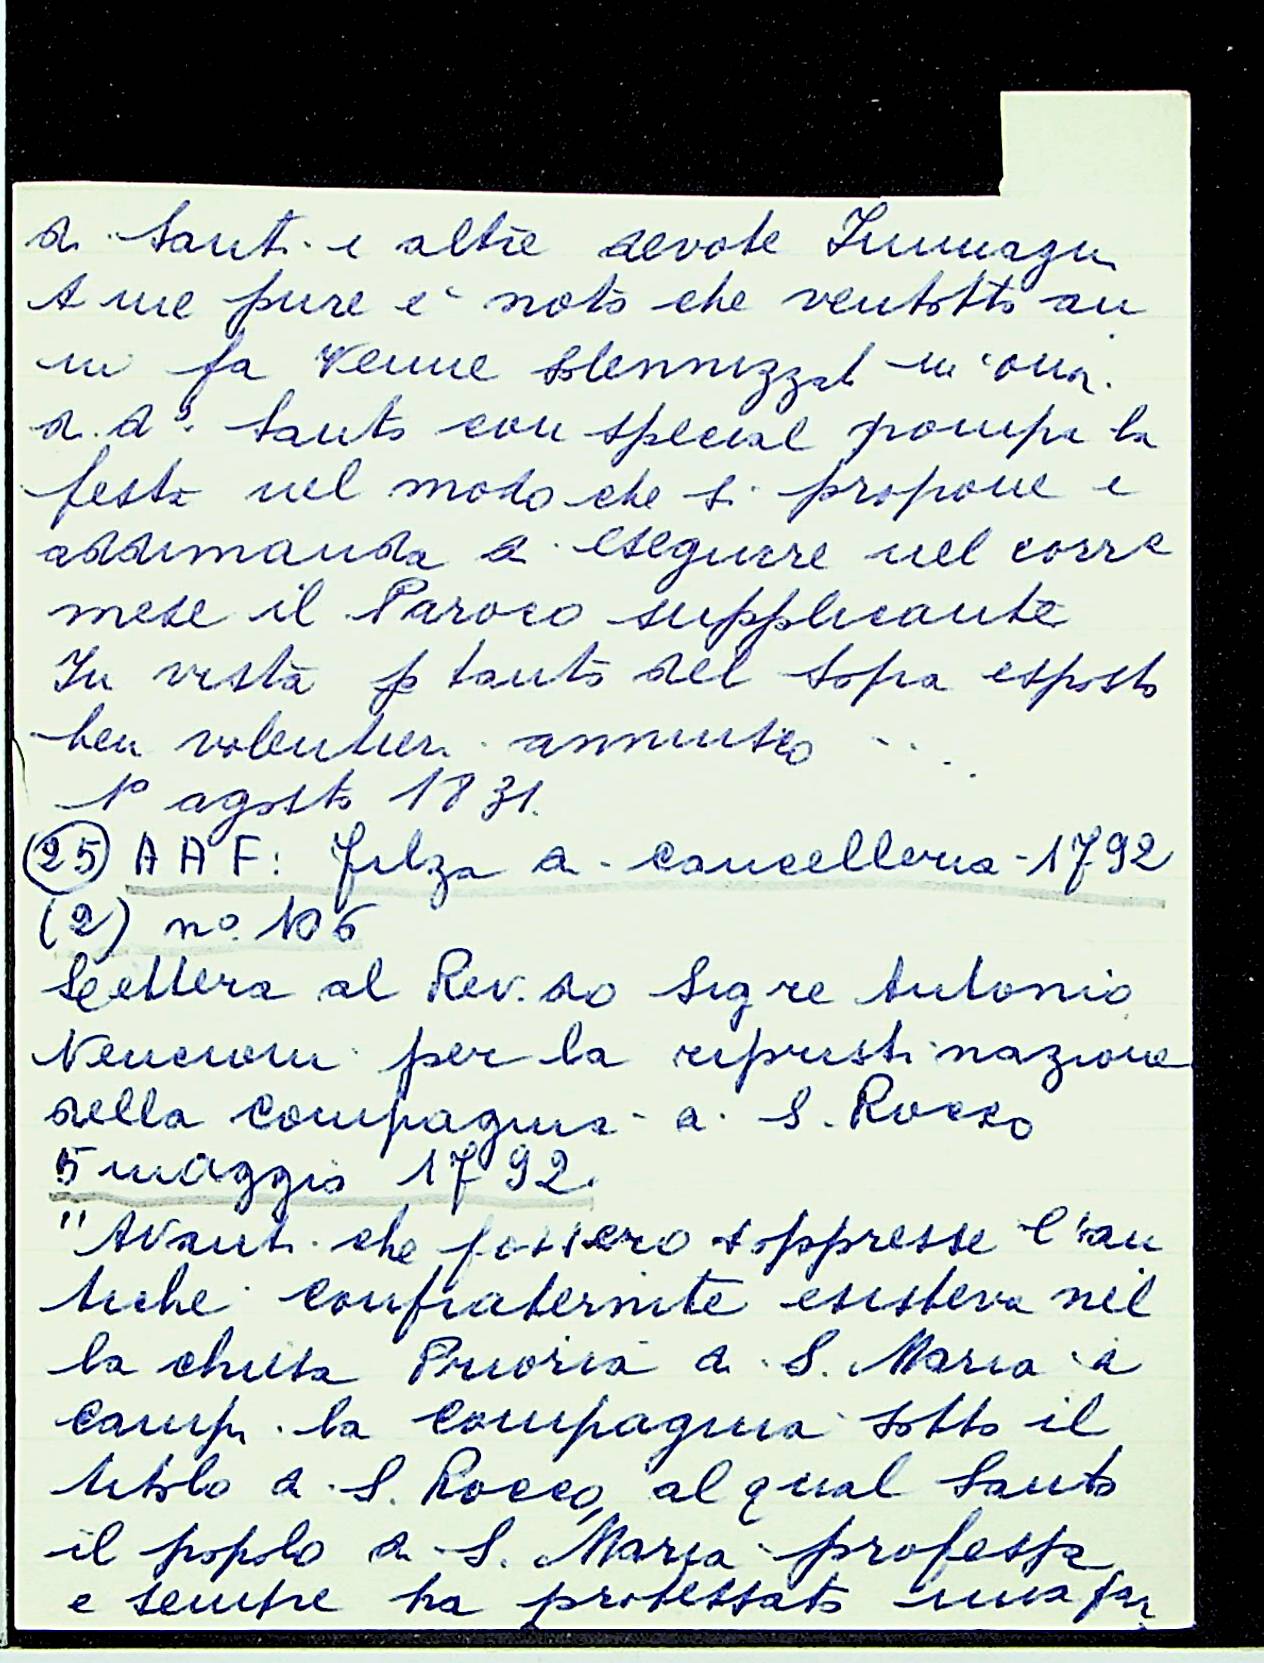 di Santi e altre devote Immagini
A me pure è noto che ventotto an
ni fa venne solennizzata in onor
di do. Santo con special pompa la
festa nel modo che si propone e
addimanda di eseguire nel corre
mese il Paroco supplicante
In vista p tanto del sopra esposto
ben volentieri annuisco ...
1º agosto 1831.
(25) AAF: Filza di cancelleria - 1792
(2) nº. 106
Lettera al Rev.do Sigre Antonio
Vencioni per la ripristinazione
della Compagnia di S. Rocco
5 maggio 1792.
"Avanti che fossero soppresse l'an
tiche confraternite esisteva nel
la chiesa Prioria di S. Maria a
Campi la Compagnia sotto il
titolo di S. Rocco, al qual Santo
il popolo di S. Maria professa
e sempre ha professato una par